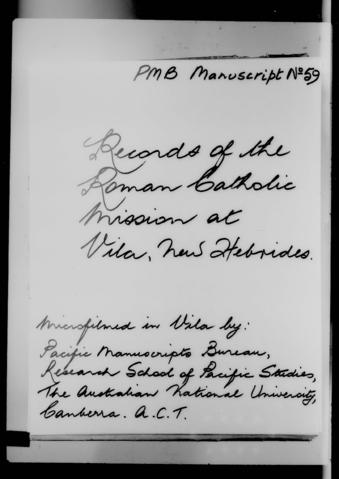 PMB Manuscript No 59
Records of the
Roman Catholic
Mission at
Vila, New Hebrides.
Microfilmed in Vila by:
Pacific Manuscripts Bureau,
Research School of Pacific Studies,
The Australian National University,
Canberra. A.C.T.